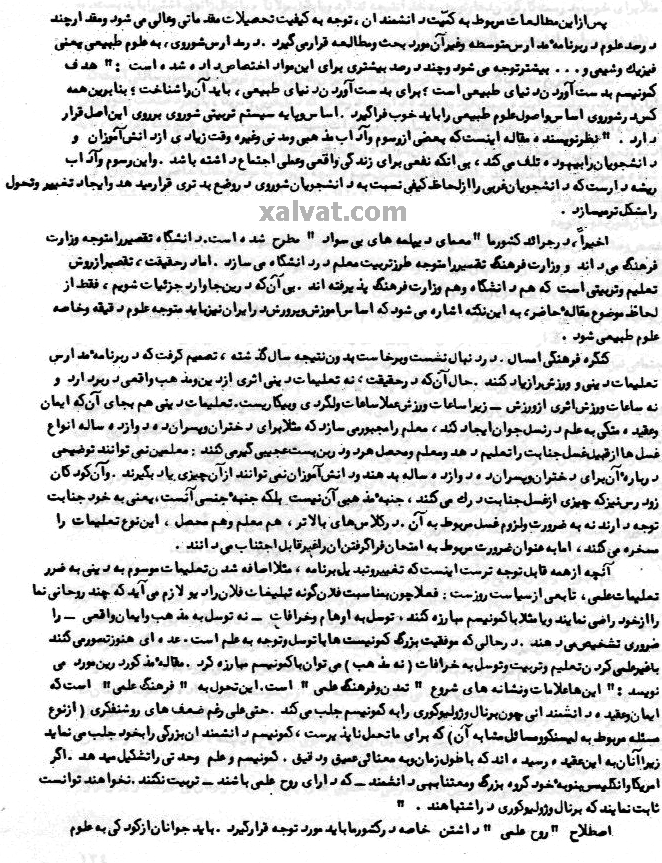 پس از این مطالعات مربوط به کمیّت دانشمندان ، توجه به کیفیت تحصیلات مقدماتی وعالی می شود ومقدار چند
درصد علوم در برنامهٔ مدارس متوسطه وغیرآن مورد بحث ومطالعه قرار می گیرد . در مدارس شوروی ، به علوم طبیعی یعنی
فیزیك وشیمی و . . . بیشتر توجه می شود وچند درصد بیشتری برای این مواد اختصاص داده شده است : " هدف
کمونیسم بدست آوردن دنیای طبیعی است ؛ برای بدست آوردن دنیای طبیعی ، باید آن را شناخت ؛ بنابرین همه
کس در شوروی اساس واصول علوم طبیعی را باید خوب فراگیرد . اساس وپایه سیستم تربیتی شوروی برروی این اصل قرار
دارد . " نظر نویسنده مقاله اینست که بعضی از رسوم وآداب مذهبی ومدنی وغیره وقت زیادی از دانش آموزان و
دانشجویان را بیهوده تلف می کند ، بی آنکه نفعی برای زندگی واقعی وعملی اجتماع داشته باشد . واین رسوم وآداب
ریشه دار است که دانشجویان غربی را از لحاظ کیفی نسبت به دانشجویان شوروی در وضع بدتری قرار میدهد وایجاد تغییر وتحول
را مشکل تر میسازد .
xalvat.com
اخیراً ، در جرائد کشور ما " معمای دیپلمه های بی سواد " مطرح شده است. دانشگاه تقصیر را متوجه وزارت
فرهنگ می داند و وزارت فرهنگ تقصیر را متوجه طرز تربیت معلم در دانشگاه می سازد . اما در حقیقت ، تقصیر از روش
تعلیم وتربیتی است که هم دانشگاه وهم وزارت فرهنگ پذیرفته اند . بی آن که در این جا وارد جزئیات شویم ، فقط از
لحاظ موضوع مقالهٔ حاضر ، به این نکته اشاره می شود که اساس آموزش وپرورش در ایران نیز باید متوجه علوم دقیقه وخاصه
علوم طبیعی شود .
کنگره فرهنگی امسال . در دنبال نشست وبرخاست بدون نتیجه سال گذشته ، تصمیم گرفت که در برنامهٔ مدارس
تعلیمات دینی و ورزش را زیاد کنند . حال آن که در حقیقت ، نه تعلیمات دینی اثری از دین ومذهب واقعی دربردارد و
نه ساعات ورزش اثری از ورزش ــ زیرا ساعات ورزش عملا ساعات ولگردی وبیکاریست. تعلیمات دینی هم بجای آن که ایمان
وعقیده متکی به علم در نسل جوان ایجاد کند ، معلم را مجبور می سازد که مثلا برای دختران وپسران ده دوازده ساله انواع
غسل ها از قبیل غسل جنابت را تعلیم دهد ومعلم ومحصل هردو در بن بست عجیبی گیر می کنند : معلمین نمی توانند توضیحی
درباره ٔ آن برای دختران وپسران ده دوازده ساله بدهند ودانش آموزان نمی توانند از آن چیزی یاد بگیرند . وآن کودکان
زودرس نیز که چیزی از غسل جنابت درك می کنند ، جنبهٔ مذهبی آن نیست بلکه جنبهٔ جنسی آنست، یعنی به خود جنابت
توجه دارند نه به ضرورت ولزوم غسل مربوط به آن . در کلاس های بالاتر ، هم معلم وهم محصل ، این نوع تعلیمات را
مسخره می کنند ، اما به عنوان ضرورت مربوط به امتحان فراگرفتن آن را غیرقابل اجتناب می دانند .
آنچه از همه قابل توجه ترست اینست که تغییر وتبدیل برنامه ، مثلا اضافه شدن تعلیمات موسوم به دینی به ضرر
تعلیمات علمی ، تابعی از سیاست روز ست : فعلا چون بمناسبت فلان گونه تبلیغات فلان رادیو لازم می آید که چند روحانی نما
را از خود راضی نمایند ویا مثلا با کمونیسم مبارزه کنند ، توسل به اوهام وخرافات ــ نه توسل به مذهب وایمان واقعی ــ را
ضروری تشخیص می دهند . در حالی که موفقیت بزرگ کمونیست ها با توسل وتوجه به علم است . عده ای هنوز تصور می کنند
با غیرعلمی کردن تعلیم وتربیت وتوسل به خرافات ( نه مذهب ) می توان با کمونیسم مبارزه کرد . مقالهٔ مذکور در این مورد می
نویسد : " این ها علامات ونشانه های شروع " تمدن وفرهنگ علمی " است. این تحول به " فرهنگ علمی " است که
ایمان وعقیده دانشمندانی چون برنال وژولیو کوری را به کمونیسم جلب می کند . حتی علی رغم ضعف های روشنفکری ( از نوع
مسئله مربوط به لیسنکو ومسائل مشابه آن ) که برای ما تحمل ناپذیر ست ، کمونیسم دانشمندان بزرگی را بخود جلب می نماید
زیرا آنان به این عقیده رسیده اند که با طول زمان وبه معنائی عمیق ودقیق . کمونیسم وعلم وحدتی را تشکیل میدهد . اگر
امریکا وانگلیس بنوبه ٔ خود گروه بزرگ ومعتنابهی دانشمند ــ که دارای روح علمی باشند ــ تربیت نکنند . نخواهند توانست
ثابت نمایند که برنال وژولیو کوری در اشتباهند . "
اصطلاح " روح علمی " داشتن خاصه در کشور ما باید مورد توجه قرار گیرد . باید جوانان از کودکی به علوم